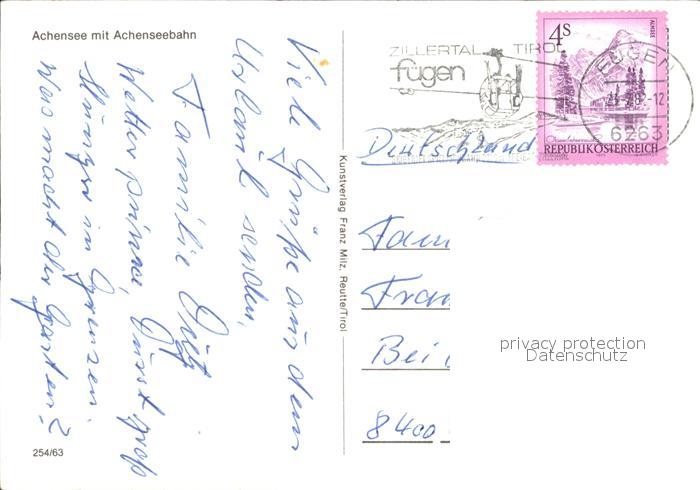 Achensee mit Achenseebahn
Viele Grüße aus dem
Urlaub senden
Familie
Wetter prima, Durst groß
Hunger in Grenzen.
Was macht der Garten?
254/63
Kunstverlag Franz Milz, Reutte/Tirol
ZILLERTAL TIROL
fügen
FÜGEN
6263
4S
ALMSEE
REPUBLIK ÖSTERREICH
Deutschland
Fam
Fran
Bei
8400
privacy protection
Datenschutz